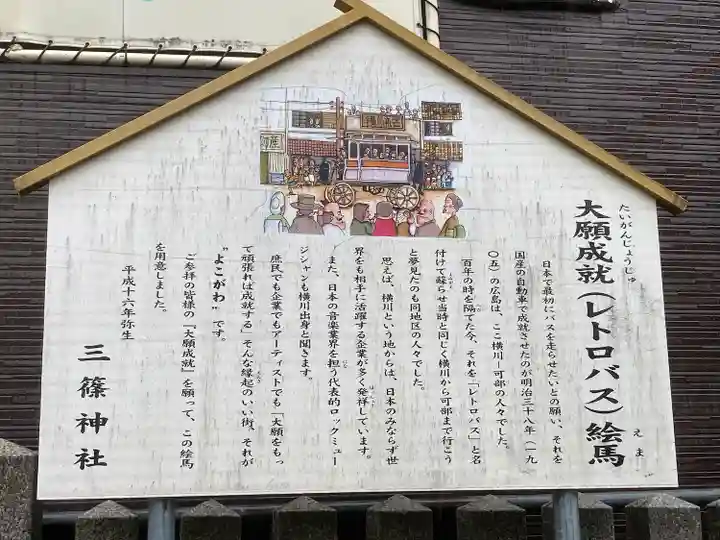 たいがんじょうじゅ
大願成就(レトロバス)絵馬
えま
日本で最初にバスを走らせたいとの願い、それを
国産の自動車で成就させたのが明治三十八年(一九
〇五)の広島は、ここ横川―可部の人々でした。
百年の時を隔てた今、それを「レトロバス」と名
付けて蘇らせ当時と同じく横川から可部まで行こう
と夢見たのも同地区の人々でした。
思えば、横川という地からは、日本のみならず世
界をも相手に活躍する企業が多く発祥しています。
また、日本の音楽業界を担う代表的ロックミュー
ジシャンも横川出身と聞きます。
庶民でも企業でもアーティストでも「大願をもっ
て頑張れば成就する」そんな縁起のいい街、それが
"よこがわ"です。
ご参拝の皆様の『大願成就』を願って、この絵馬
を用意しました。
平成十六年弥生
三篠神社